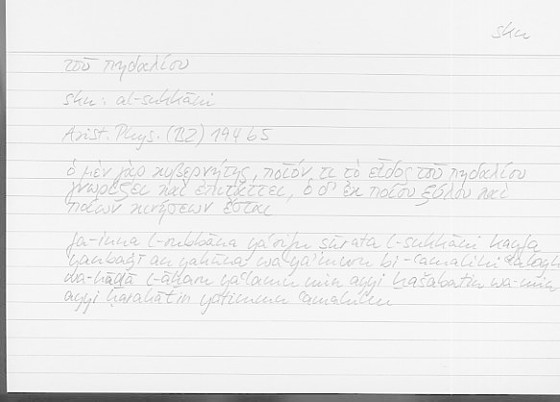 sku
τοῦ πηδαλίου
sku: al-sukkāni
Arist. Phys. (II2) 194 b5
ὁ μὲν γὰρ κυβερνήτης, ποῖόν τι τὸ εἶδος τοῦ πηδαλίου
γνωρίζει καὶ ἐπιτάττει, ὁ δ' ἐκ ποίου ξύλου καὶ
ποίων κινήσεων ἔσται
fa-inna l-rubbāna yaʿrifu ṣūrata l-sukkāni kayfa
yanbaġī an yakūna wa-yaʾmuru bi-ʿamalihi
wa-hāḏā l-āḫaru yaʿlamu min ayyi ḫašabatin wa-min
ayyi ḥarakātin